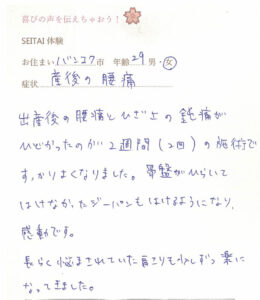 喜びの声を伝えちゃおう!
SEITAI 体験
お住まい バンコク 市 年齢 29 男・女
症状 産後の腰痛
出産後の腰痛とひざ上の鈍痛が
ひどかったのが2週間(2回)の施術で
すっかりよくなりました。骨盤がひらいて
はけなかったジーパンもはけるようになり、
感動です。
長らく悩まされていた肩こりも少しずつ楽に
なってきました。